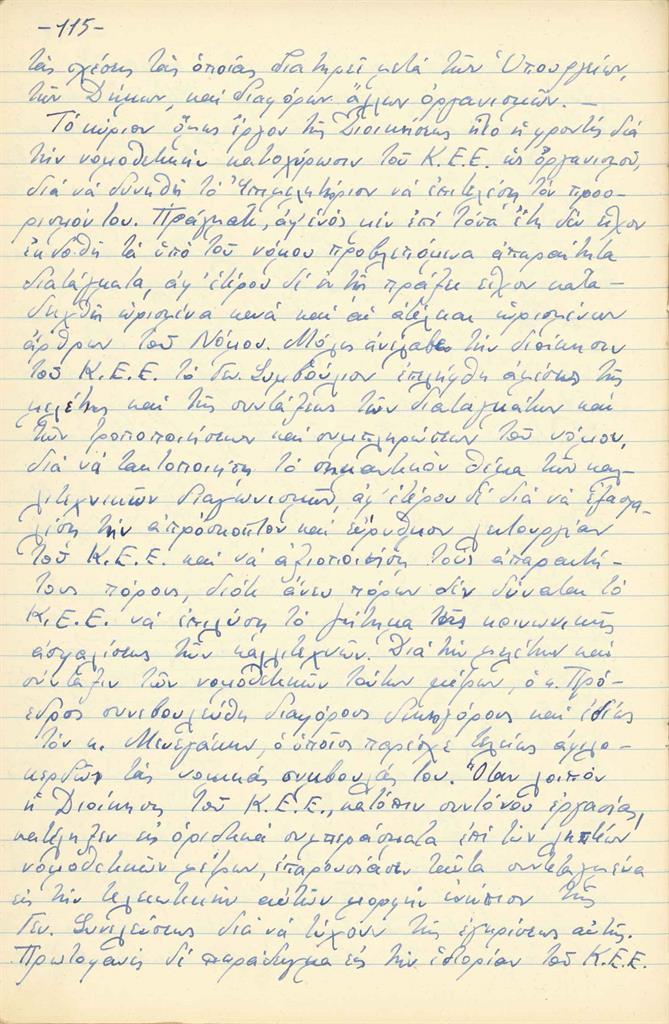 -115-
τὰς σχέσεις τὰς ὁποίας διατηρεῖ μετά τῶν Ὑπουργείων,
τῶν Δήμων, καί διαφόρων ἄλλων ὀργανισμῶν. –
Τό κύριον ὅμως ἔργον τῆς Διοικήσεως ἦτο ἡ φροντίς διά
τήν νομοθετικήν κατοχύρωσιν τοῦ Κ.Ε.Ε. ὡς ὀργανισμοῦ,
διά νά δυνηθῇ τό Ἐπιμελητήριον νά ἐπιτελέσῃ τόν προο-
ρισμόν του. Πράγματι, ἀφ' ἑνός μέν ἐπί τόσα ἔτη δέν εἶχον
ἐκδοθῆ τά ὑπό τοῦ νόμου προβλεπόμενα ἀπαραίτητα
διατάγματα, ἀφ' ἑτέρου δέ ἐν τῇ πράξει εἶχον κατα-
δειχθῆ ὡρισμένα κενά καί αἱ ἀτέλειαι ὡρισμένων
ἄρθρων τοῦ Νόμου. Μόλις ἀνέλαβε τήν διοίκησιν
τοῦ Κ.Ε.Ε. τό Γεν. Συμβούλιον ἐπελήφθη ἀμέσως τῆς
μελέτης καί τῆς συντάξεως τῶν διαταγμάτων καί
τῶν τροποποιήσεων καί συμπληρώσεων τοῦ νόμου,
διά νά τακτοποιήσῃ τό σημαντικόν θέμα τῶν καλ-
λιτεχνικῶν διαγωνισμῶν, ἀφ' ἑτέρου δέ διά νά ἐξασφα-
λίσῃ τήν ἀπρόσκοπτον καί εὔρυθμον λειτουργίαν
τοῦ Κ.Ε.Ε. καί νά ἀξιοποιήσῃ τούς ἀπαραιτή-
τους πόρους, διότι ἄνευ πόρων δέν δύναται τό
Κ.Ε.Ε. νά ἐπιλύσῃ τό ζήτημα τῆς κοινωνικῆς
ἀσφαλίσεως τῶν καλλιτεχνῶν. Διά τήν μελέτην καί
σύνταξιν τῶν νομοθετικῶν τούτων μέτρων, ὁ κ. Πρό-
εδρος συνεβουλεύθη διαφόρους δικηγόρους καί ἰδίως
τόν κ. Μενεγάκην, ὁ ὁποῖος παρέσχε τελείως ἀφιλο-
κερδῶς τάς νομικάς συμβουλάς του. Ὅταν λοιπόν
ἡ Διοίκησις τοῦ Κ.Ε.Ε., κατόπιν συντόνου ἐργασίας,
κατέληξεν εἰς ὁριστικά συμπεράσματα ἐπί τῶν ληπτέων
νομοθετικῶν μέτρων, ἐπαρουσίασεν ταῦτα συντεταγμένα
εἰς τήν τελειωτικήν αὐτῶν μορφήν ἐνώπιον τῆς
Γεν. Συνελεύσεως διά νά τύχουν τῆς ἐγκρίσεως αὐτῆς.
Πρωτοφανές δέ παράδειγμα εἰς τήν ἱστορίαν τοῦ Κ.Ε.Ε.